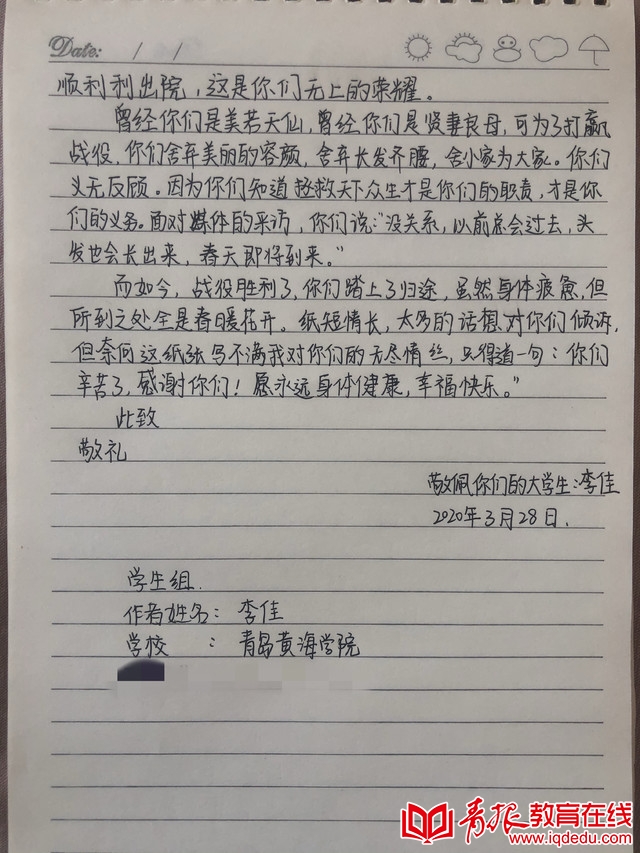 Date: / /
顺利利出院，这是你们无上的荣耀。
曾经你们是美若天仙，曾经你们是贤妻良母，可为了打赢
战役，你们舍弃美丽的容颜，舍弃长发齐腰，舍小家为大家。你们
义无反顾。因为你们知道拯救天下众生才是你们的职责，才是你
们的义务。面对媒体的采访，你们说："没关系，以前总会过去，头
发也会长出来，春天即将到来。"
而如今，战役胜利了，你们踏上了归途，虽然身体疲惫，但
所到之处全是春暖花开。纸短情长，太多的话想对你们倾诉，
但奈何这纸张写不满我对你们的无尽情丝，只得道一句：你们
辛苦了，感谢你们！愿永远身体健康，幸福快乐。"
此致
敬礼
敬佩你们的大学生：李佳
2020年3月28日.
学生组.
作者姓名：李佳
学校：青岛黄海学院
青报教育在线
www.iqdedu.com